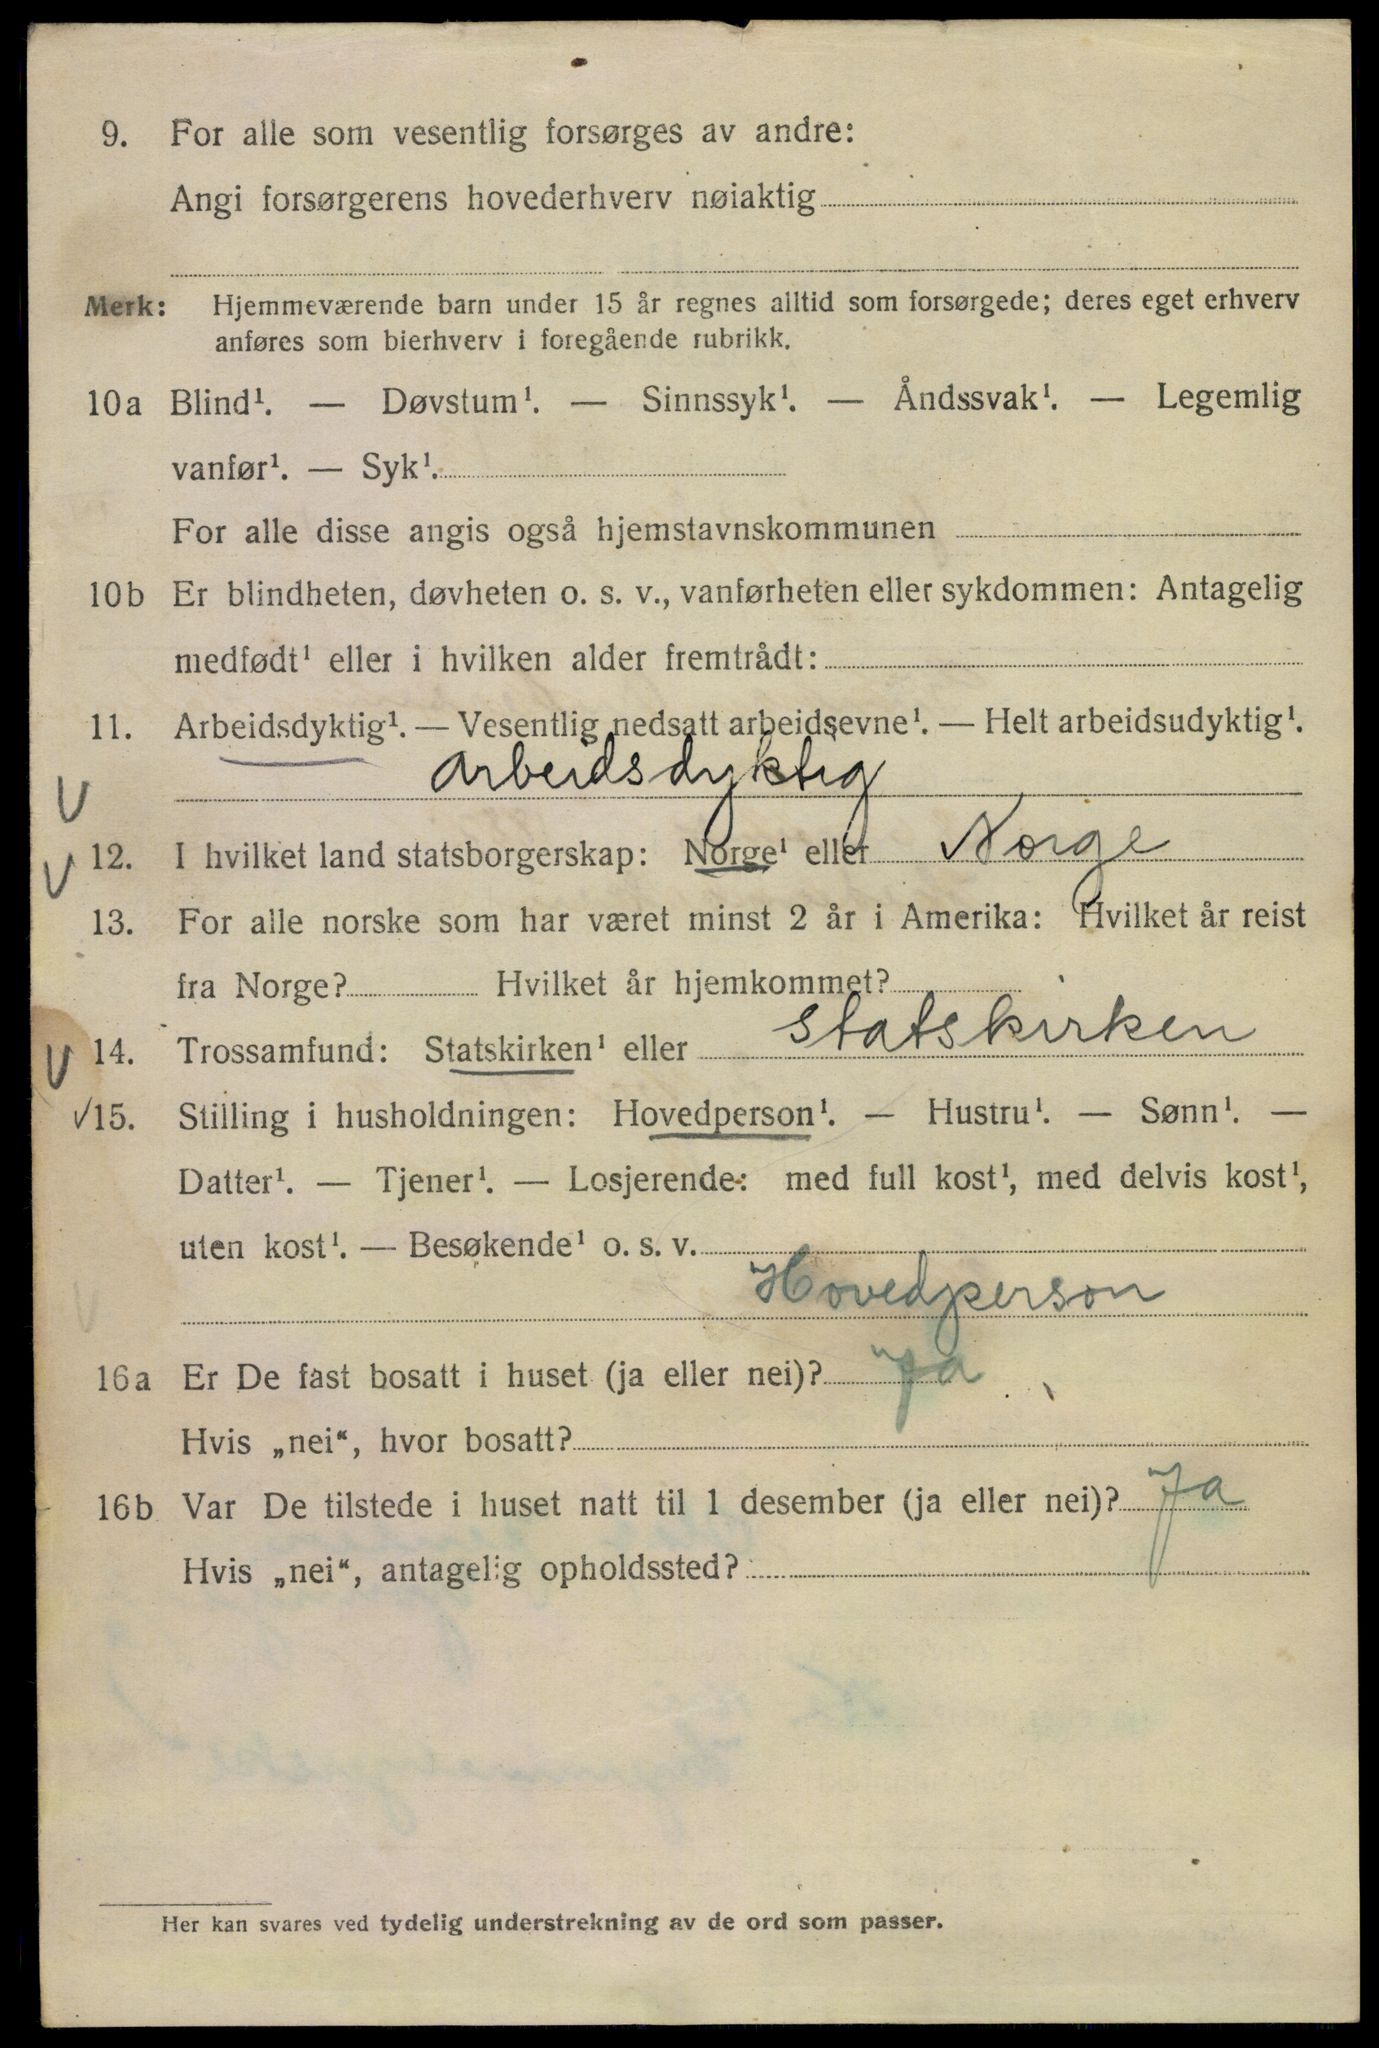 9. For alle som vesentlig forsørges av andre:
Angi forsørgerens hovederhverv nøiaktig
Merk: Hjemmeværende barn under 15 år regnes alltid som forsørgede; deres eget erhverv
anføres som bierhverv i foregående rubrikk.
10a Blind¹. — Døvstum¹. — Sinnssyk¹. — Åndssvak¹. — Legemlig
vanfør¹. — Syk¹.
For alle disse angis også hjemstavnskommunen
10b Er blindheten, døvheten o. s. v., vanførheten eller sykdommen: Antagelig
medfødt¹ eller i hvilken alder fremtrådt:
11. Arbeidsdyktig¹. — Vesentlig nedsatt arbeidsevne¹. — Helt arbeidsudyktig¹.
V arbeidsdyktig
V 12. I hvilket land statsborgerskap: Norge¹ eller Norge
13. For alle norske som har været minst 2 år i Amerika: Hvilket år reist
fra Norge? Hvilket år hjemkommet?
V 14. Trossamfund: Statskirken¹ eller statskirken
V 15. Stilling i husholdningen: Hovedperson¹. — Hustru¹. — Sønn¹. —
Datter¹. — Tjener¹. — Losjerende: med full kost¹, med delvis kost¹,
uten kost¹. — Besøkende¹ o. s. v.
V Hovedperson
16a Er De fast bosatt i huset (ja eller nei)? Ja
Hvis „nei“, hvor bosatt?
16b Var De tilstede i huset natt til 1 desember (ja eller nei)? Ja
Hvis „nei“, antagelig opholdssted?
Her kan svares ved tydelig understrekning av de ord som passer.